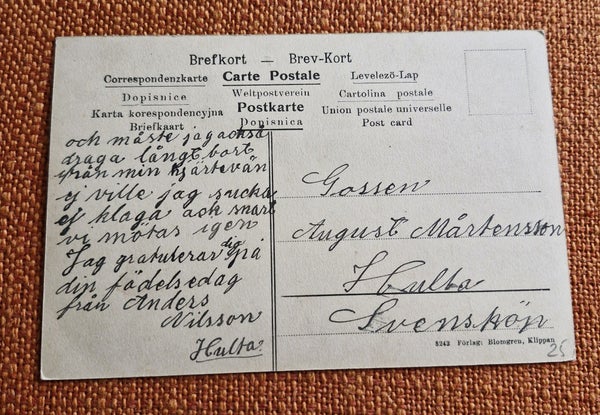 Brefkort — Brev-Kort
Correspondenzkarte Carte Postale Levelező-Lap
Dopisnice Weltpostverein Cartolina postale
Karta korespondencyjna Postkarte Union postale universelle
Briefkaart Dopisnica Post card
och måste jag också
draga långt bort
från min hjärtevän
ej ville jag sucka
ej klaga ack snart
vi mötas igen
Jag gratulerar dig på
din födelsedag
från Anders
Nilsson
Hulta
Gossen
August Mårtensson
Hulta
Svensköp
8243 Förlag: Blomgren, Klippan
25